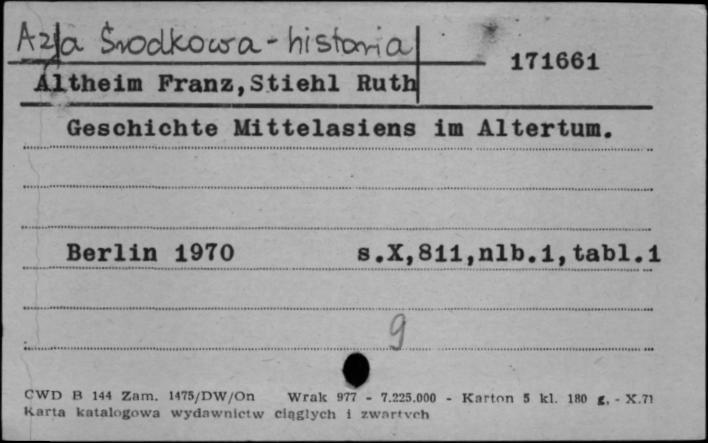 Azja Środkowa - historia
171661
Altheim Franz,Stiehl Ruth
Geschichte Mittelasiens im Altertum.
Berlin 1970 s.X,811,nlb.1,tabl.1
9
CWD B 144 Zam. 1475/DW/On Wrak 977 - 7.225.000 - Karton 5 kl. 180 g. - X.71
Karta katalogowa wydawnictw ciągłych i zwartych